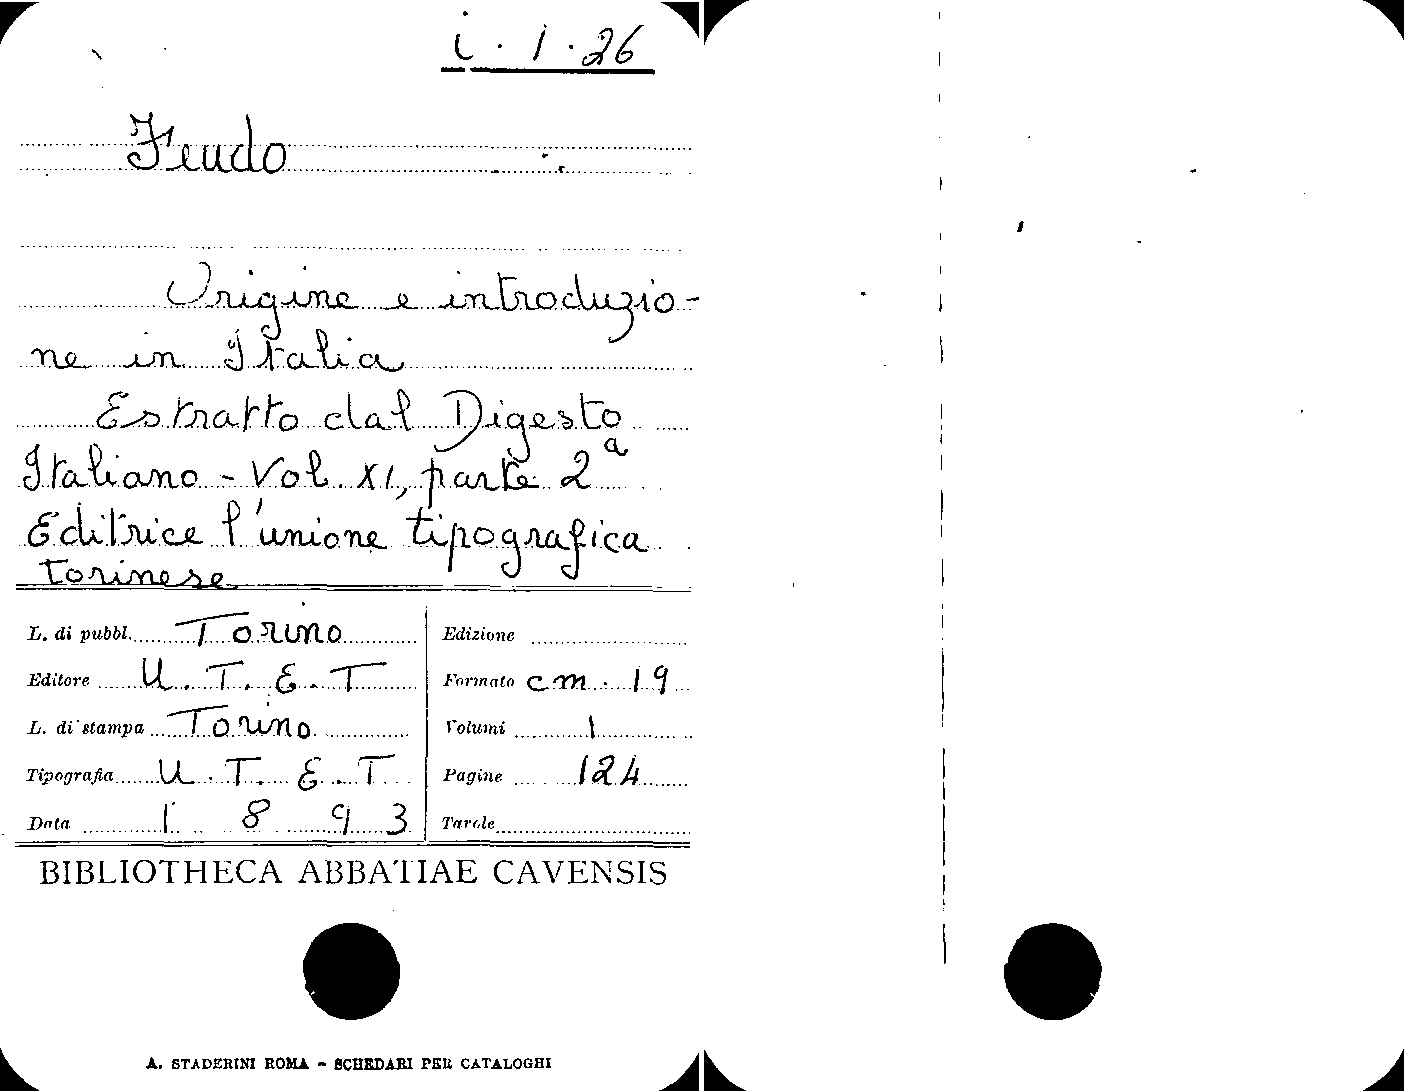 i. 1. 26
Feudo
Origine e introduzio-
ne in Italia
Estratto dal Digesto
Italiano - Vol. XI, parte 2ª
Editrice l'unione tipografica
torinese
L. di pubbl. Torino
Editore U. T. E. T
L. di stampa Torino
Tipografia U. T. E. T
Data 1893
Edizione
Formato cm. 19
Volumi 1
Pagine 124
Tavole
BIBLIOTHECA ABBATIAE CAVENSIS
A. STADERINI ROMA - SCHEDARI PER CATALOGHI